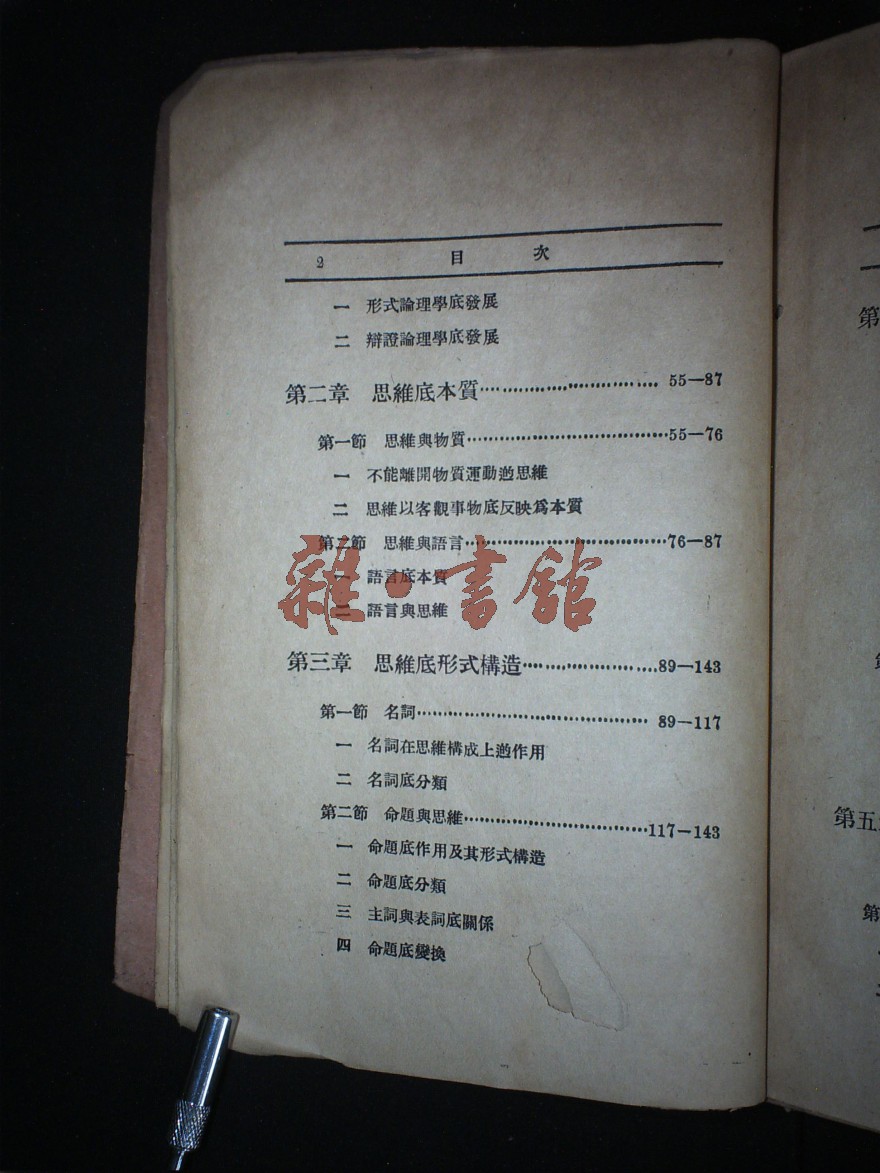 2 目 次
一 形式論理學底發展
二 辯證論理學底發展
第二章 思維底本質…………………………55—87
第一節 思維與物質…………………………55—76
一 不能離開物質運動逈思維
二 思維以客觀事物底反映爲本質
第二節 思維與語言…………………………76—87
一 語言底本質
二 語言與思維
第三章 思維底形式構造…………………89—143
第一節 名詞…………………………89—117
一 名詞在思維構成上逈作用
二 名詞底分類
第二節 命題與思維…………………………117—143
一 命題底作用及其形式構造
二 命題底分類
三 主詞與表詞底關係
四 命題底變換
雜·書館
第
第五
第